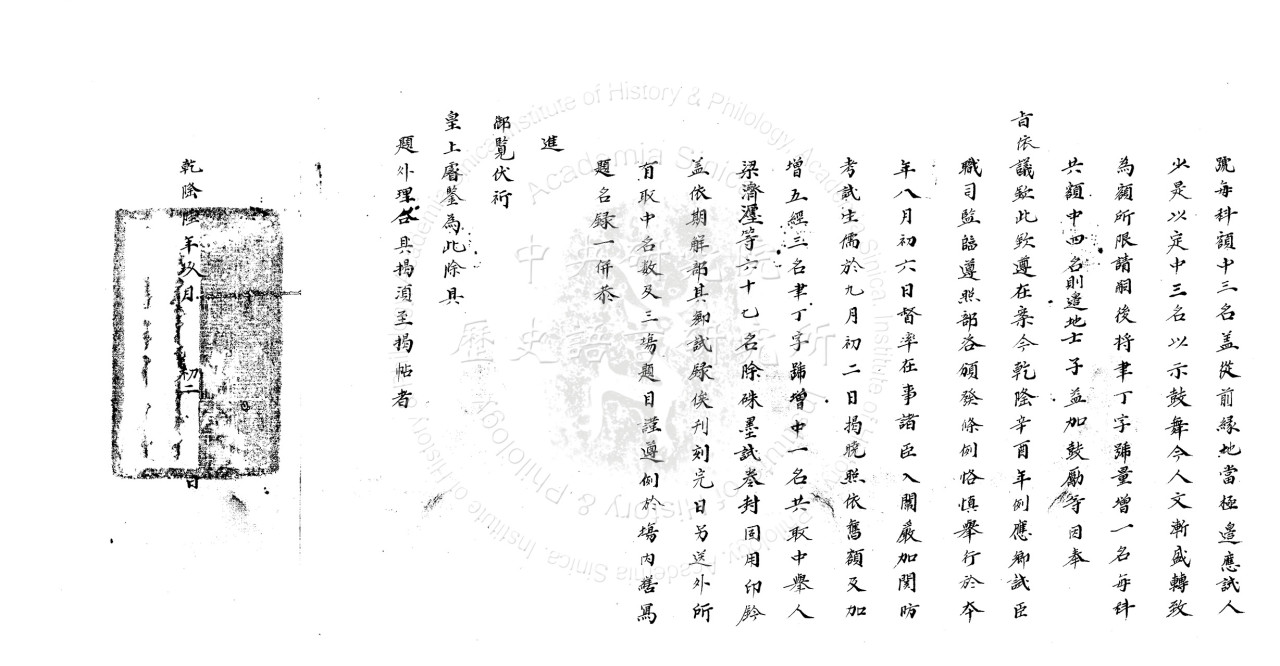 號每科額中三名盖從前緣地當極邉應試人
少是以定中三名以示鼓舞今人文漸盛轉致
為額所限請嗣後将聿丁字號量增一名每科
共額中四名則邉地士子益加鼓勵等因奉
㫖依議欽此欽遵在案今乾隆辛酉年例應鄉試臣
職司監臨遵照部咨頒發條例恪慎舉行於夲
年八月初六日督率在事諸臣入闈嚴加関防
考試生儒於九月初二日揭曉照依舊額及加
增五經三名聿丁字號增中一名共取中舉人
梁濟瀣等六十七名除硃墨試卷封固用印鈐
盖依期解部其鄉試録俟刊刻完日另送外所
有取中名数及三塲題目謹遵例於塲内繕寫
題名録一併恭
進
御覧伏祈
皇上睿鑒為此除具
題外理合具揭湏至揭帖者
乾隆陸年玖月初二日
中央研究院
歷史語言研究所
Academia Sinica
Institute of History & Philology, Academia Sinica